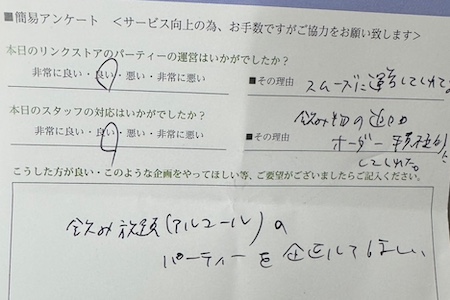 ■簡易アンケート <サービス向上の為、お手数ですがご協力をお願い致します>
本日のリンクストアのパーティーの運営はいかがでしたか?
非常に良い・良い・悪い・非常に悪い ■その理由 スムーズに運営してくれた。
本日のスタッフの対応はいかがでしたか? 飲み物の追加
非常に良い・良い・悪い・非常に悪い ■その理由 オーダー 積極的に
してくれた。
こうした方が良い・このような企画をやってほしい等、ご要望がございましたらご記入ください。
飲み放題(アルコール)の
パーティーを企画してほしい